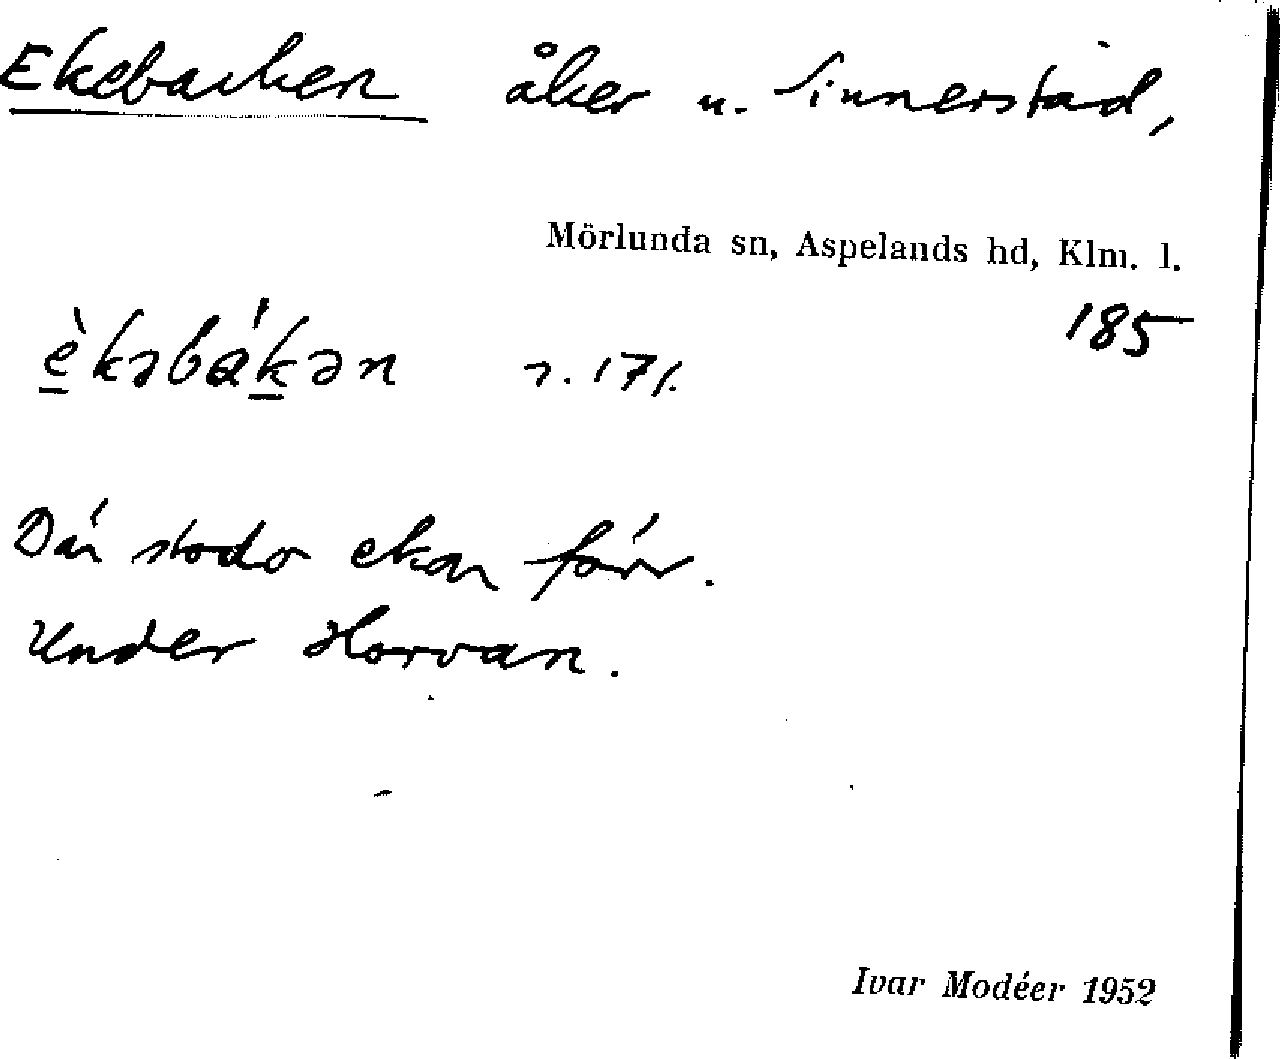 Ekebacken åker u. Sinnerstad,
Mörlunda sn, Aspelands hd, Klm. l.
185
è̱kəbáḵən r. 171.
Där stodo ekar förr.
Under Horvan.
Ivar Modéer 1952